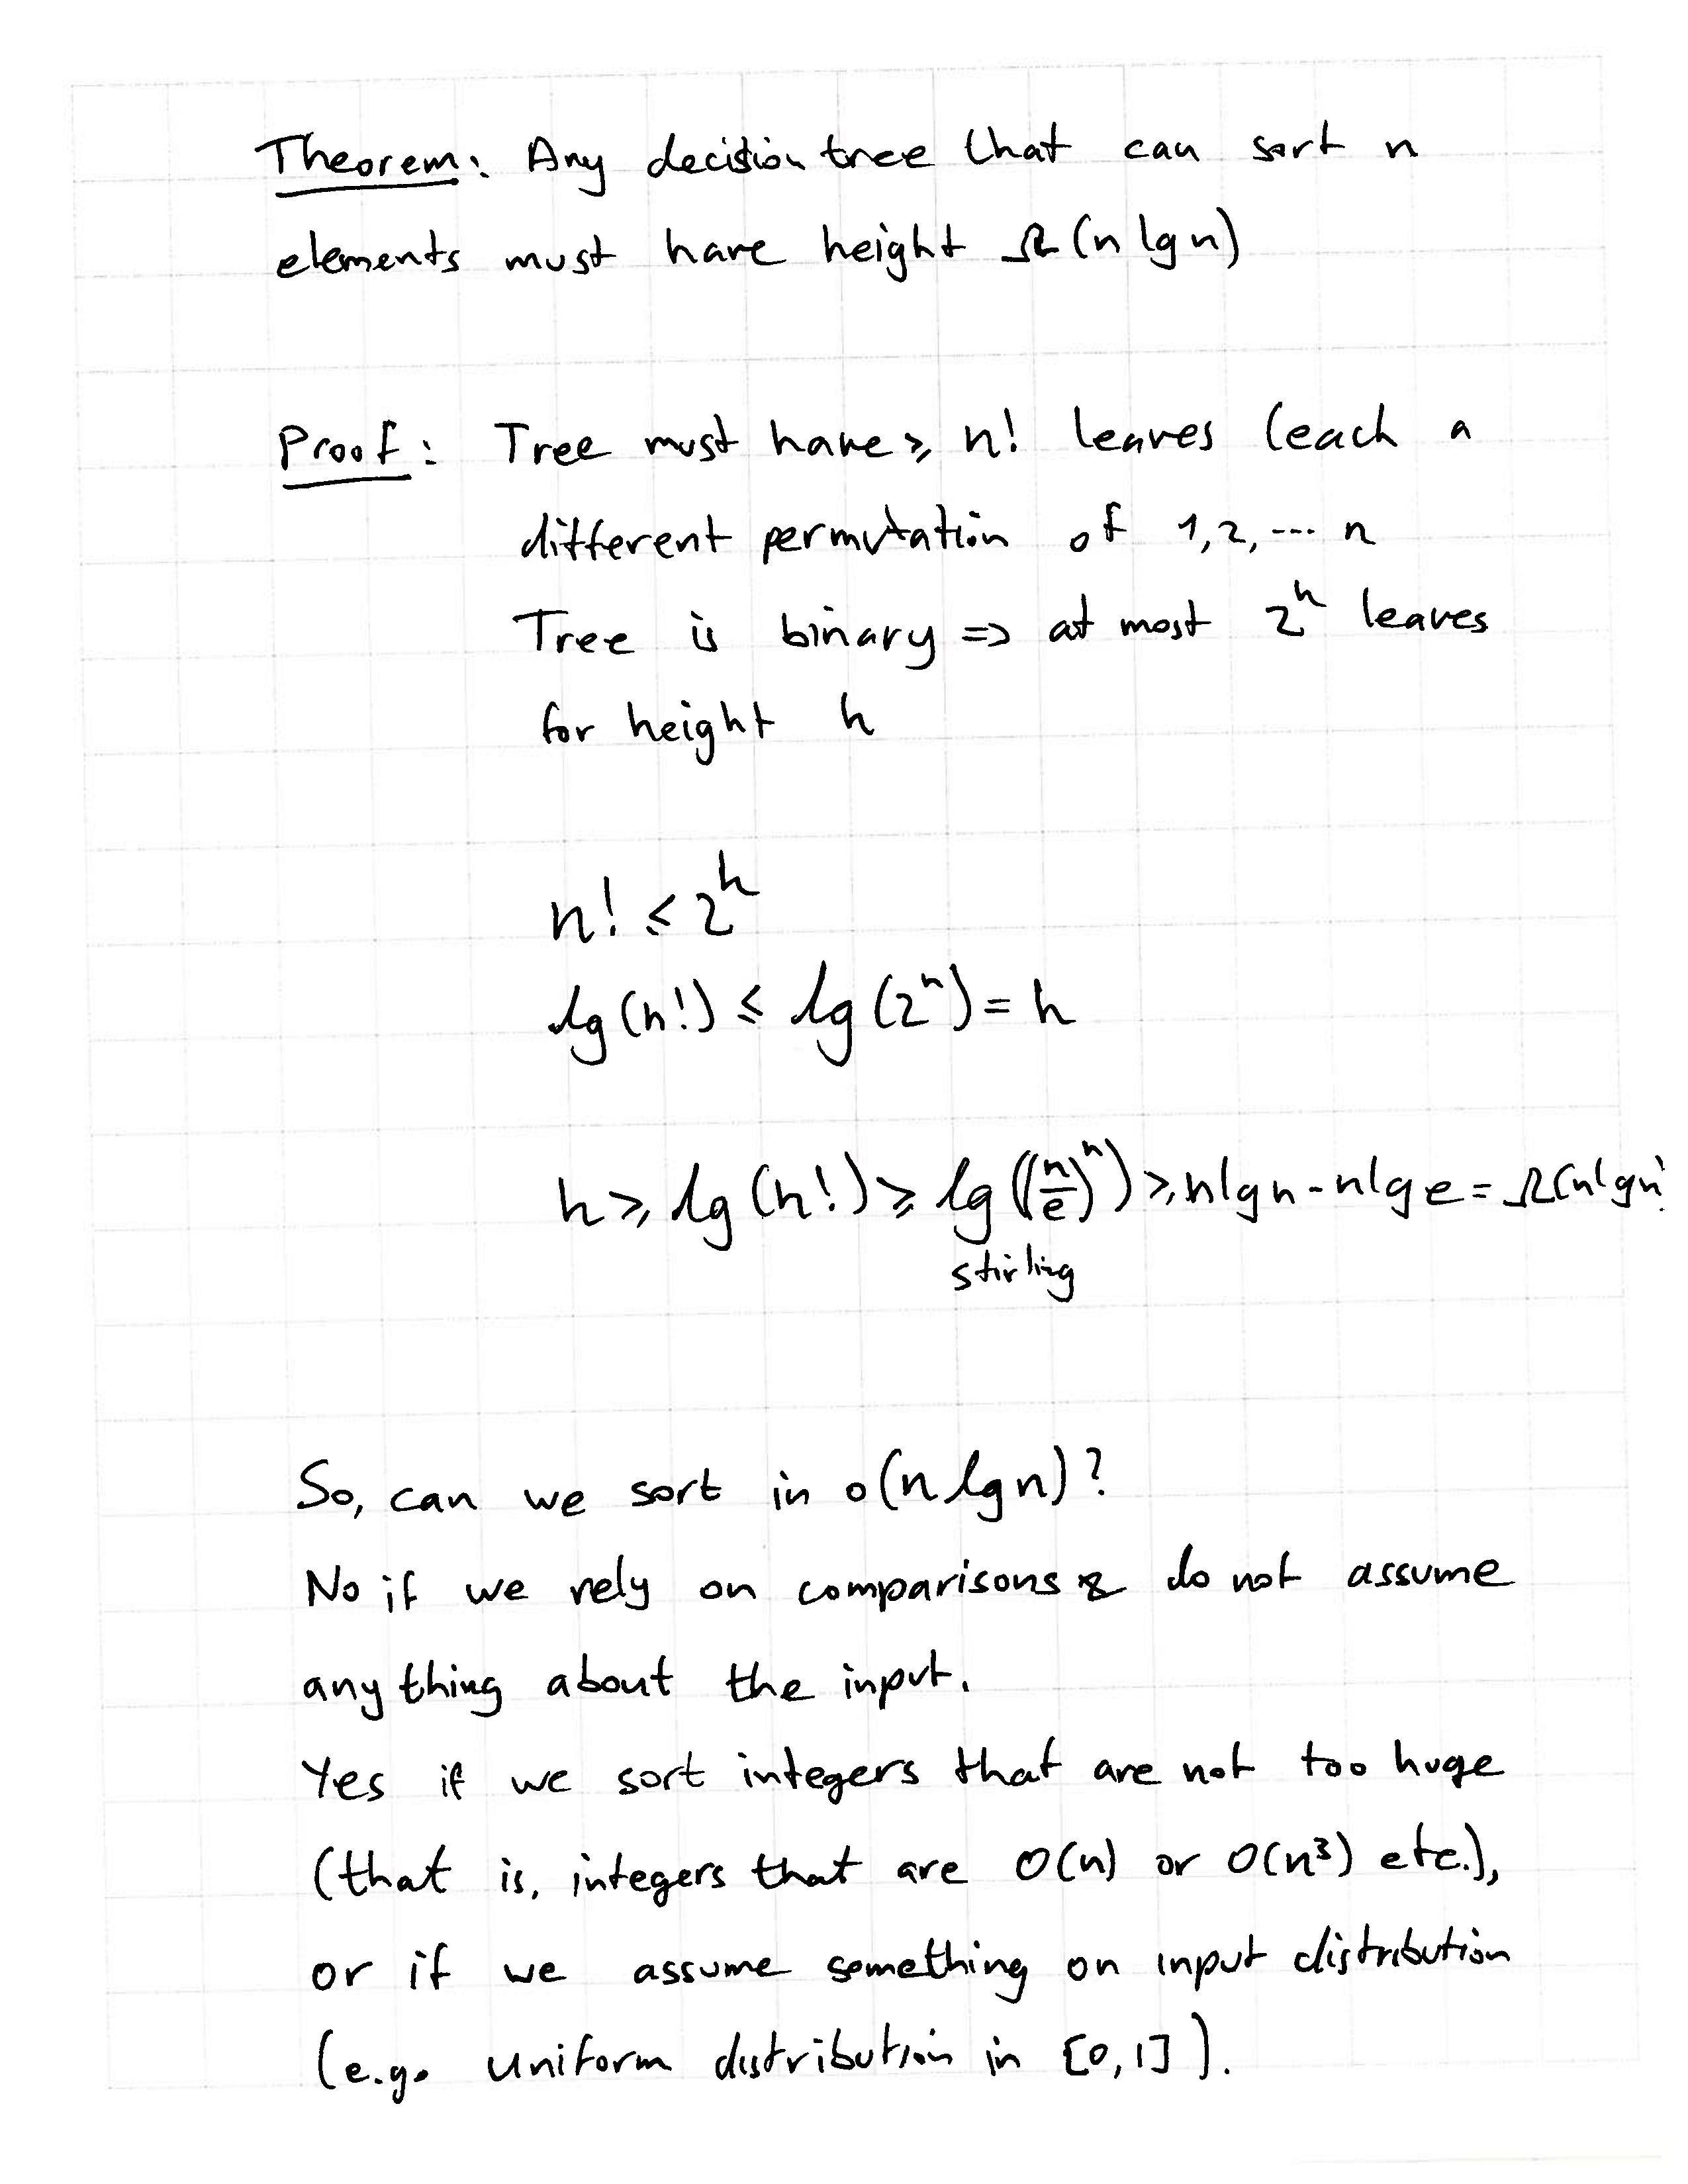 Theorem: Any decision tree that can sort n
elements must have height Ω(n lg n)
Proof: Tree must have ≥ n! leaves (each a
different permutation of 1,2,... n
Tree is binary => at most 2^h leaves
for height h
n! ≤ 2^h
lg(n!) ≤ lg(2^h) = h
h ≥ lg(n!) ≥ lg((n/e)^n) ≥ n lg n - n lg e = Ω(n lg n)
stirling
So, can we sort in o(n lg n)?
No if we rely on comparisons & do not assume
anything about the input.
Yes if we sort integers that are not too huge
(that is, integers that are O(n) or O(n³) etc.),
or if we assume something on input distribution
(e.g. uniform distribution in [0,1]).